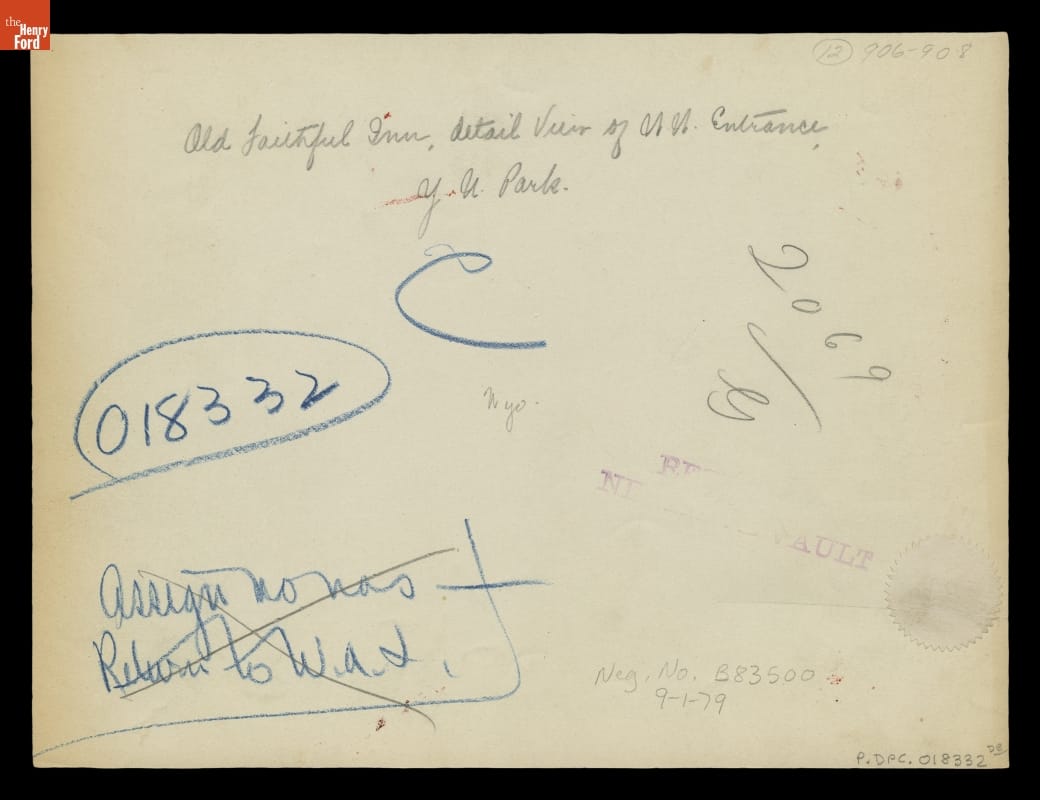 the
Henry
Ford
12 906-908
Old Faithful Inn, detail View of N.N. Entrance,
Y. N. Park.
C
2069
018332
Wyo.
RE
NE VAULT
Assign no nos
Return to W.A.L.
Neg. No. B83500
9-1-79
P.DPC.018332